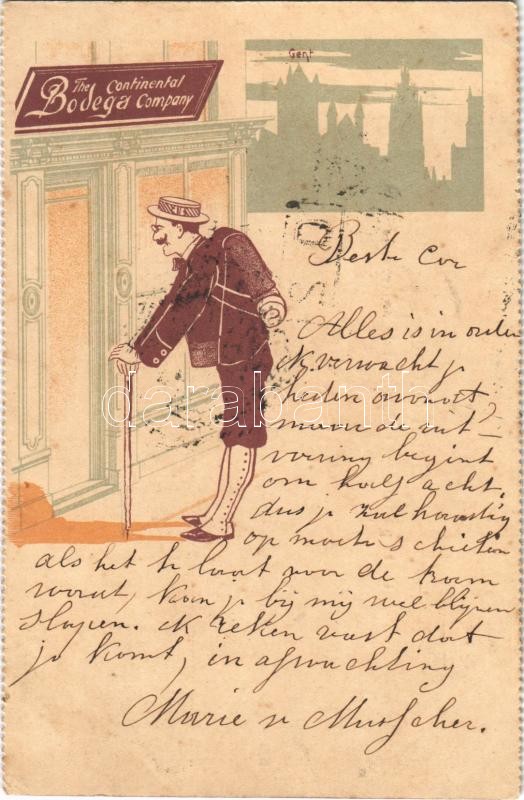 The Continental
Bodega Company
Gent
Beste Cor
Alles is in orde
ik verwacht je
heden avond,
maar de uit-
voering begint
om half acht,
dus je zal haastig
op moeten schieten
als het te laat voor de tram
wordt, kan je bij mij wel blijven
slapen. Ik reken vast dat
je komt, in afwachting
Marie v Musscher.
darabanth